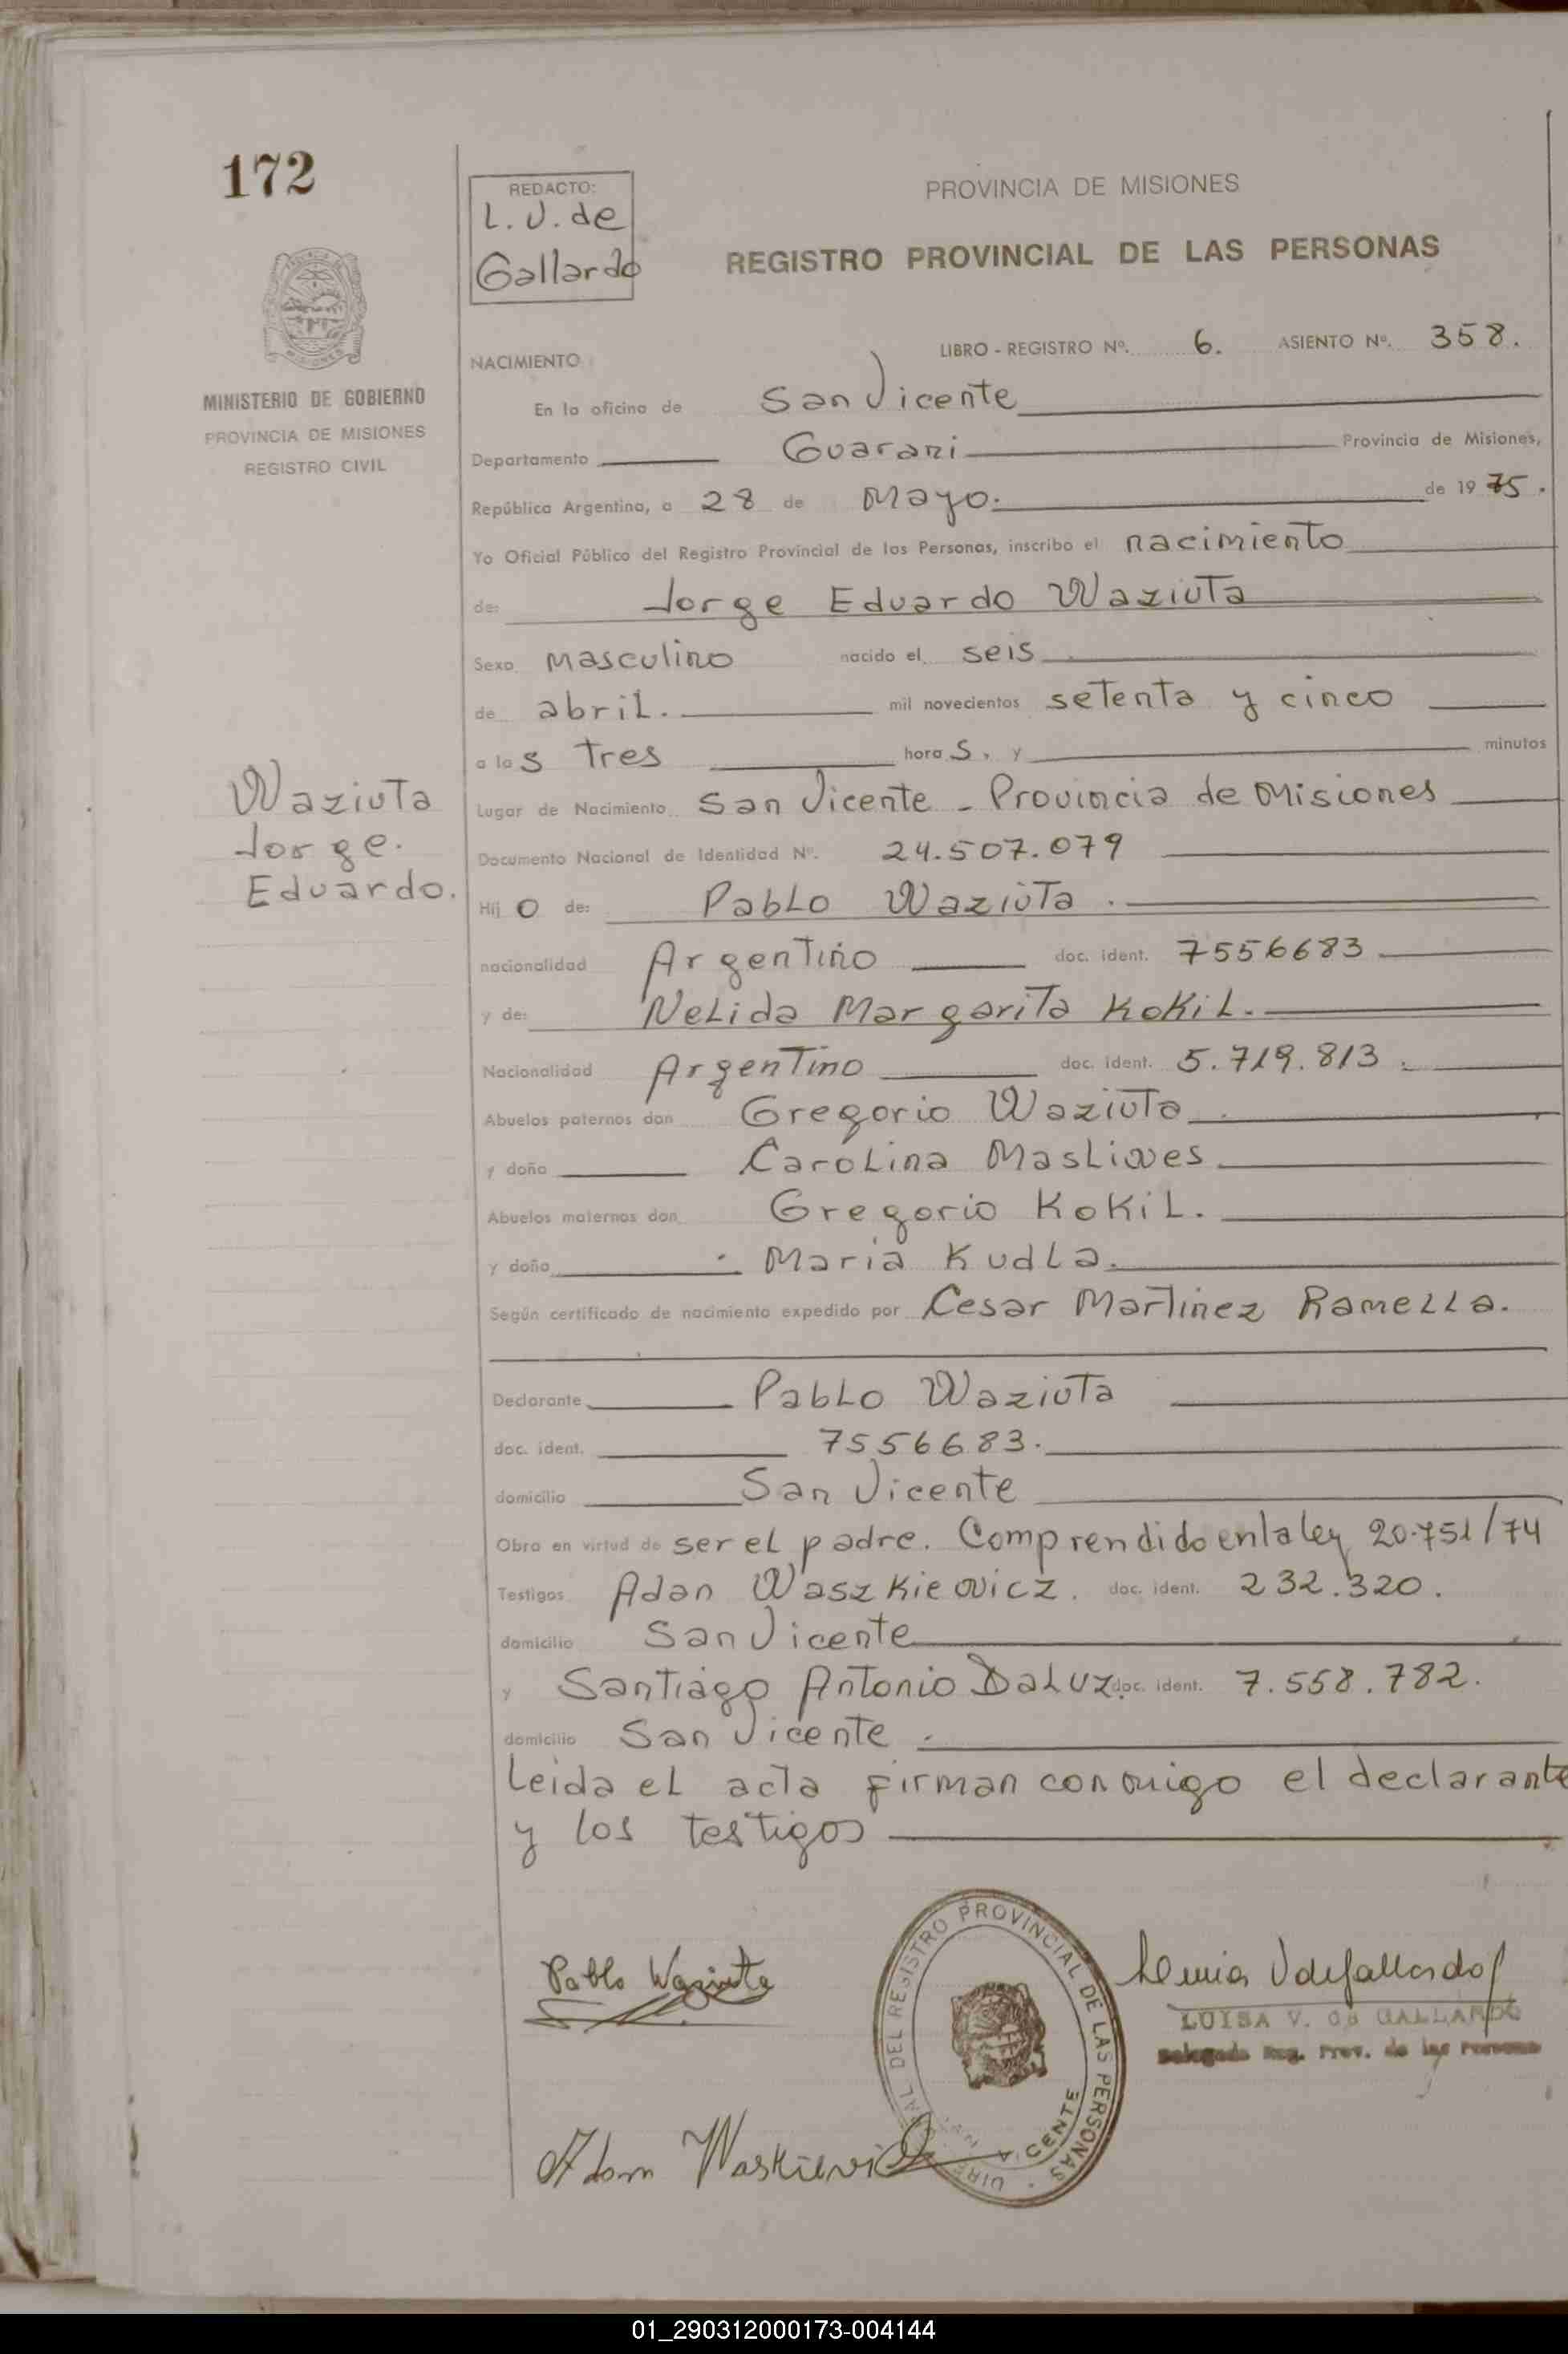 172
REDACTO:
L.V.de
Gallardo
PROVINCIA DE MISIONES
REGISTRO PROVINCIAL DE LAS PERSONAS
MISIONES
MINISTERIO DE GOBIERNO
PROVINCIA DE MISIONES
REGISTRO CIVIL
LIBRO - REGISTRO Nº. 6. ASIENTO Nº. 358.
NACIMIENTO
En la oficina de San Vicente
Departamento Guarani Provincia de Misiones,
República Argentina, a 28 de Mayo. de 1975.
Yo Oficial Público del Registro Provincial de las Personas, inscribo el nacimiento
de: Jorge Eduardo Waziuta
Sexo masculino nacido el seis
de abril. mil novecientos setenta y cinco
a las tres horas, y minutos
Waziuta
Jorge.
Eduardo.
Lugar de Nacimiento San Vicente - Provincia de Misiones
Documento Nacional de Identidad Nº. 24.507.079
Hijo de: Pablo Waziuta.
nacionalidad Argentino doc. ident. 7556683
y de: Nelida Margarita Kokil.
Nacionalidad Argentino doc. ident. 5.719.813.
Abuelos paternos don Gregorio Waziuta
y doña Carolina Masliwes
Abuelos maternos don Gregorio Kokil.
y doña Maria Kudla.
Según certificado de nacimiento expedido por Cesar Martinez Ramella.
Declarante Pablo Waziuta
doc. ident. 7556683.
domicilio San Vicente
Obra en virtud de ser el padre. Comprendido en la ley 20.751/74
Testigos Adan Waszkiewicz. doc. ident. 232.320.
domicilio San Vicente
y Santiago Antonio DaLuz. doc. ident. 7.558.782.
domicilio San Vicente.
Leida el acta firman conmigo el declarante
y los testigos
Pablo Waziuta
DEL REGISTRO PROVINCIAL DE LAS PERSONAS
VICENTE
LUISA V. de GALLARDO
Delegada Reg. Prov. de las Personas
Adam
01_290312000173-004144